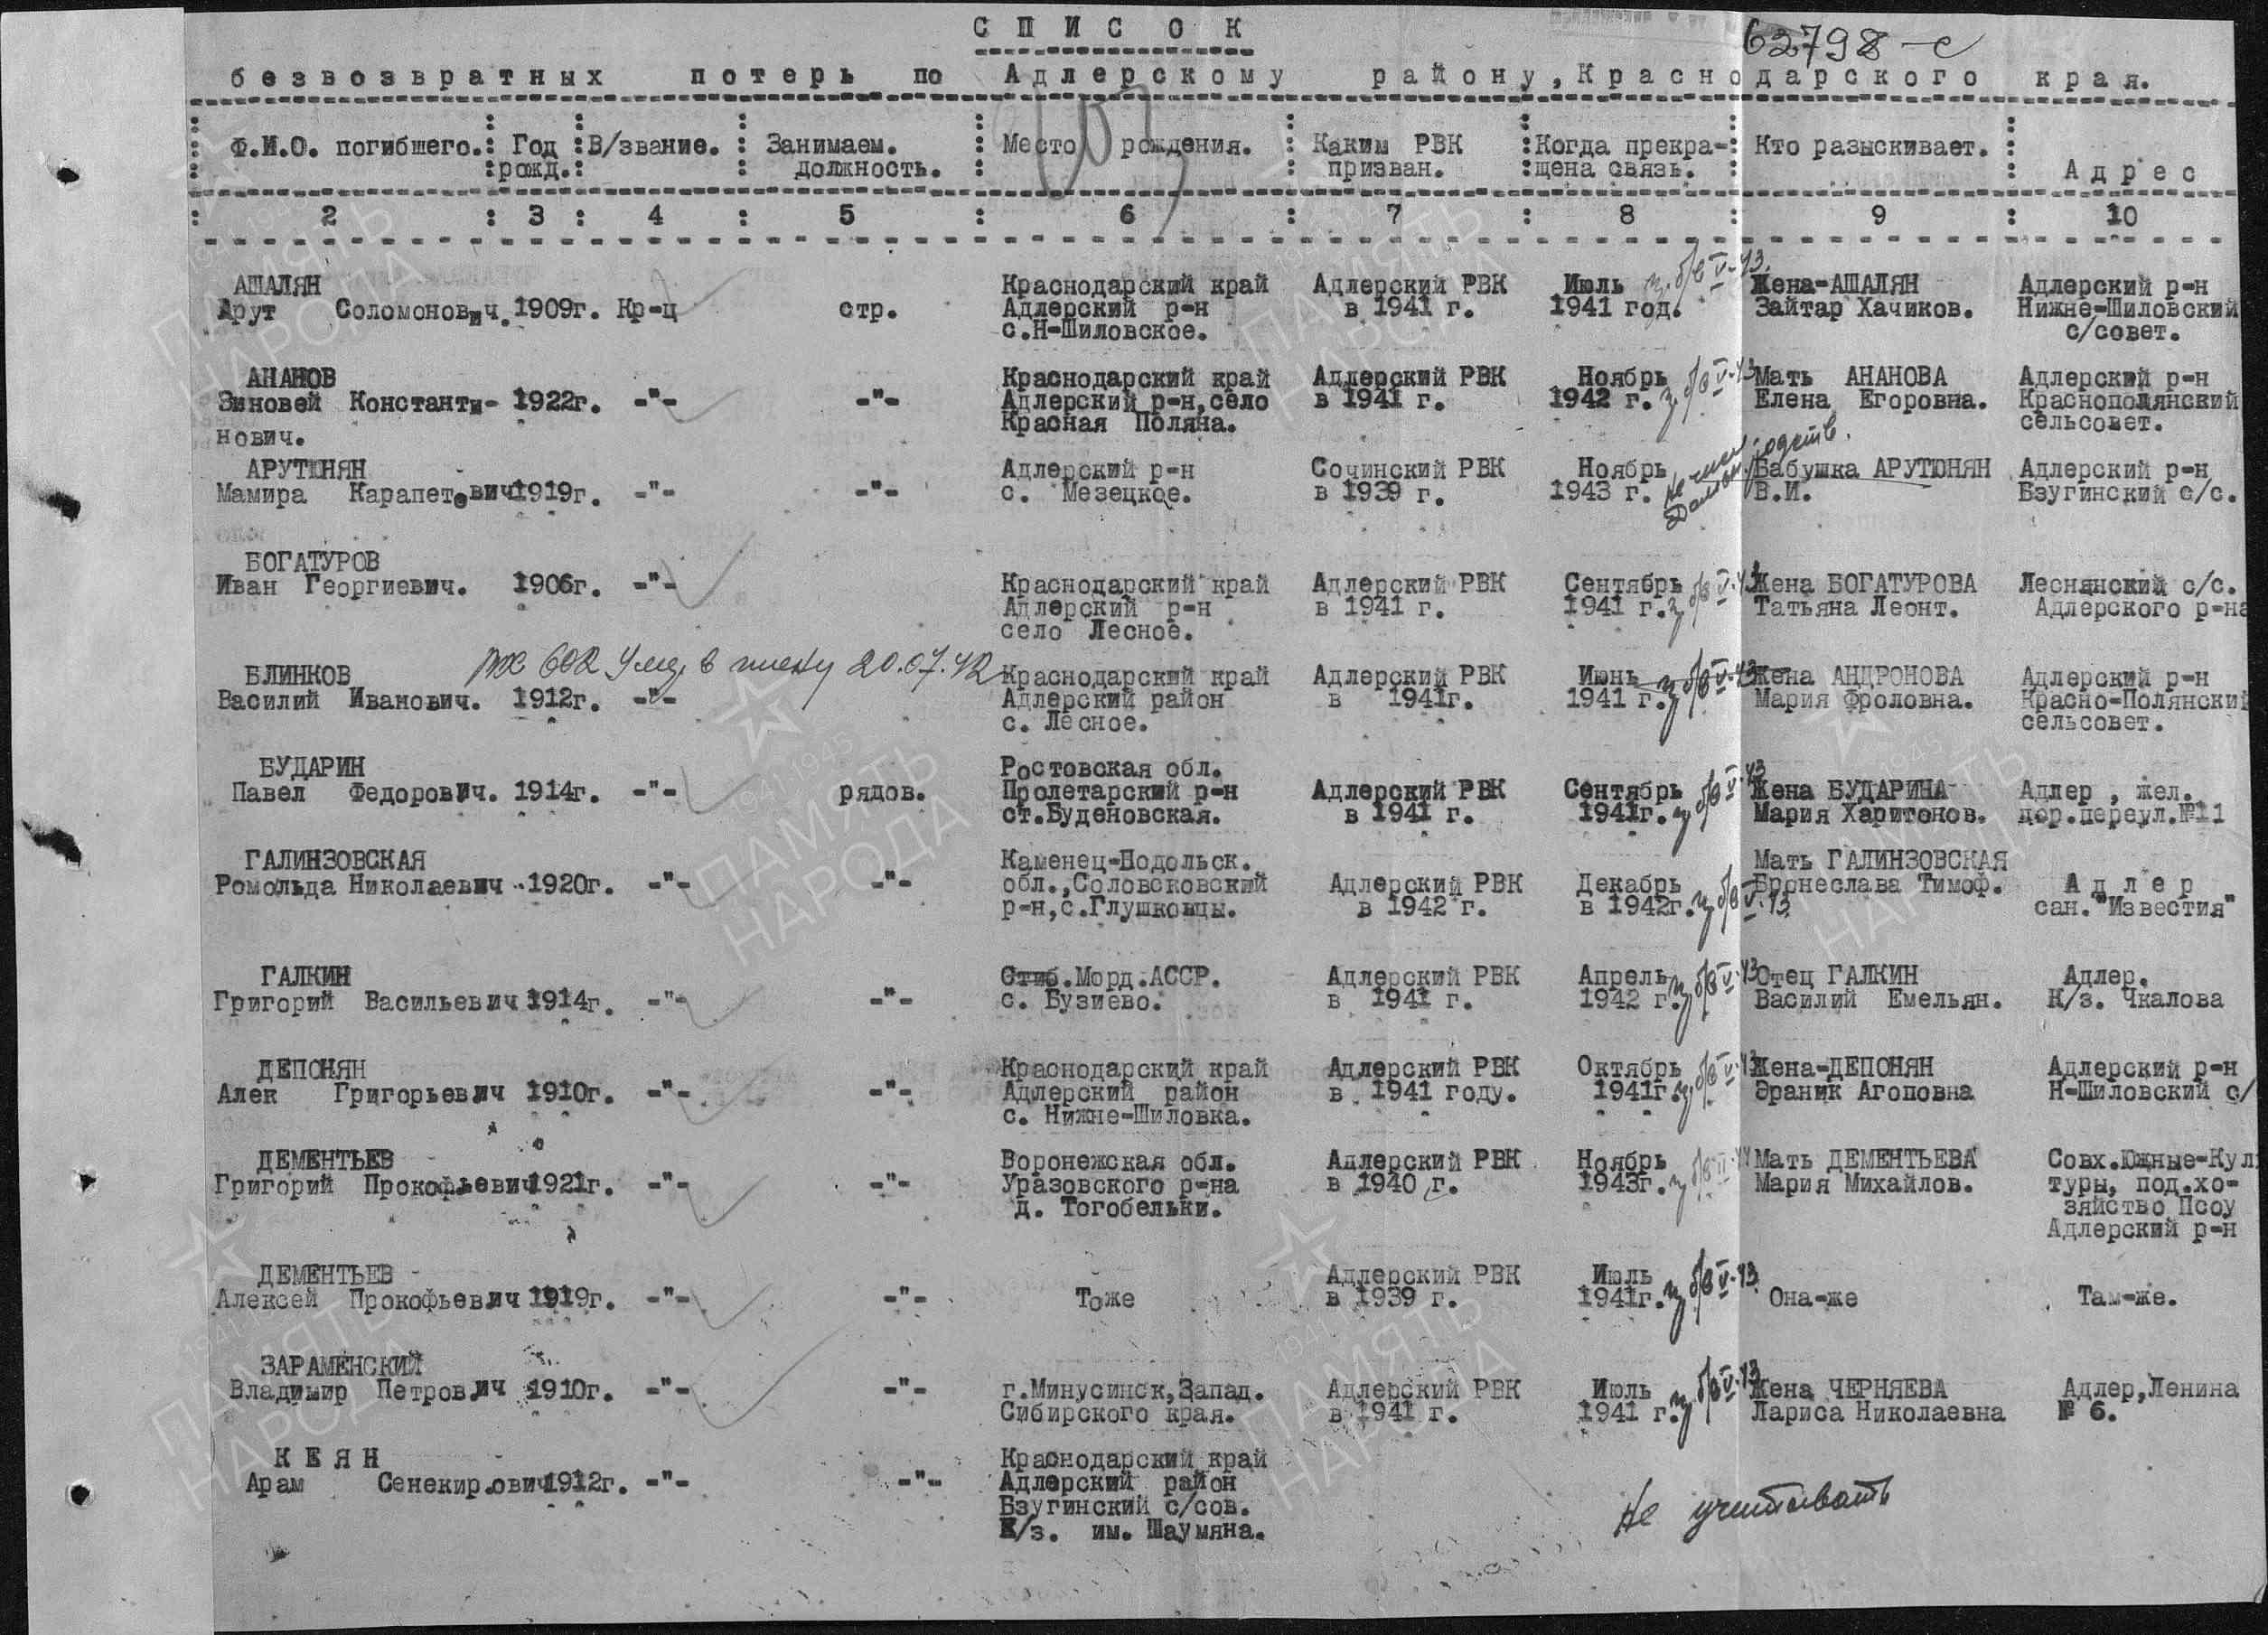 СПИСОК
62798-с
безвозвратных потерь по Адлерскому району, Краснодарского края.
Ф.И.О. погибшего. : Год рожд. : В/звание. : Занимаем. должность. : Место рождения. : Каким РВК призван. : Когда прекращена связь. : Кто разыскивает. : Адрес
2 : 3 : 4 : 5 : 6 : 7 : 8 : 9 : 10
АШАЛЯН Краснодарский край Адлерский РВК Июль Жена-АШАЛЯН Адлерский р-н
Арут Соломонович. 1909г. Кр-ц стр. Адлерский р-н в 1941 г. 1941 год. Зайтар Хачиков. Нижне-Шиловский
с.Н-Шиловское. с/совет.
АНАНОВ Краснодарский край Адлерский РВК Ноябрь Мать АНАНОВА Адлерский р-н
Зиновей Константи- 1922г. -"- -"- Адлерский р-н, село в 1941 г. 1942 г. Елена Егоровна. Краснополянский
нович. Красная Поляна. сельсовет.
АРУТЮНЯН Адлерский р-н Сочинский РВК Ноябрь Бабушка АРУТЮНЯН Адлерский р-н
Мамира Карапетович 1919г. -"- -"- с. Мезецкое. в 1939 г. 1943 г. В.И. Бзугинский с/с.
БОГАТУРОВ
Иван Георгиевич. 1906г. -"- Краснодарский край Адлерский РВК Сентябрь Жена БОГАТУРОВА Леснянский с/с.
Адлерский р-н в 1941 г. 1941 г. Татьяна Леонт. Адлерского р-на
село Лесное.
Ум. в плену 20.07.42
БЛИНКОВ Краснодарский край Адлерский РВК Июнь Жена АНДРОНОВА Адлерский р-н
Василий Иванович. 1912г. -"- Адлерский район в 1941г. 1941 г. Мария Фроловна. Красно-Полянский
с. Лесное. сельсовет.
БУДАРИН Ростовская обл.
Павел Федорович. 1914г. -"- рядов. Пролетарский р-н Адлерский РВК Сентябрь Жена БУДАРИНА Адлер , жел.
ст.Буденовская. в 1941 г. 1941г. Мария Харитонов. дор.переул.№11
ГАЛИНЗОВСКАЯ Каменец-Подольск. Мать ГАЛИНЗОВСКАЯ
Ромольда Николаевич 1920г. -"- -"- обл.,Соловсковский Адлерский РВК Декабрь Бронеслава Тимоф. Адлер
р-н,с.Глушковцы. в 1942 г. в 1942г. сан."Известия"
ГАЛКИН Стиб.Морд.АССР. Адлерский РВК Апрель Отец ГАЛКИН Адлер.
Григорий Васильевич 1914г. -"- -"- с. Бузиево. в 1941 г. 1942 г. Василий Емельян. К/з. Чкалова
ДЕПОНЯН Краснодарский край Адлерский РВК Октябрь Жена-ДЕПОНЯН Адлерский р-н
Алек Григорьевич 1910г. -"- -"- Адлерский район в 1941 году. 1941г. Эраник Агоповна Н-Шиловский с/
с. Нижне-Шиловка.
ДЕМЕНТЬЕВ Воронежская обл. Адлерский РВК Ноябрь Мать ДЕМЕНТЬЕВА Совх.Южные-Куль
Григорий Прокофьевич 1921г. -"- -"- Уразовского р-на в 1940 г. 1943г. Мария Михайлов. туры, под.хо-
д. Тогобельки. зяйство Псоу
Адлерский р-н
ДЕМЕНТЬЕВ Адлерский РВК Июль
Алексей Прокофьевич 1919г. -"- -"- Тоже в 1939 г. 1941г. Она-же Там-же.
ЗАРАМЕНСКИЙ
Владимир Петрович 1910г. -"- -"- г.Минусинск,Запад. Адлерский РВК Июль Жена ЧЕРНЯЕВА Адлер,Ленина
Сибирского края. в 1941 г. 1941 г. Лариса Николаевна № 6.
КЕЯН Краснодарский край
Арам Сенекирович 1912г. -"- -"- Адлерский район
Бзугинский с/сов.
К/з. им. Шаумяна.
Не учитывать
1941 1945
ПАМЯТЬ
НАРОДА